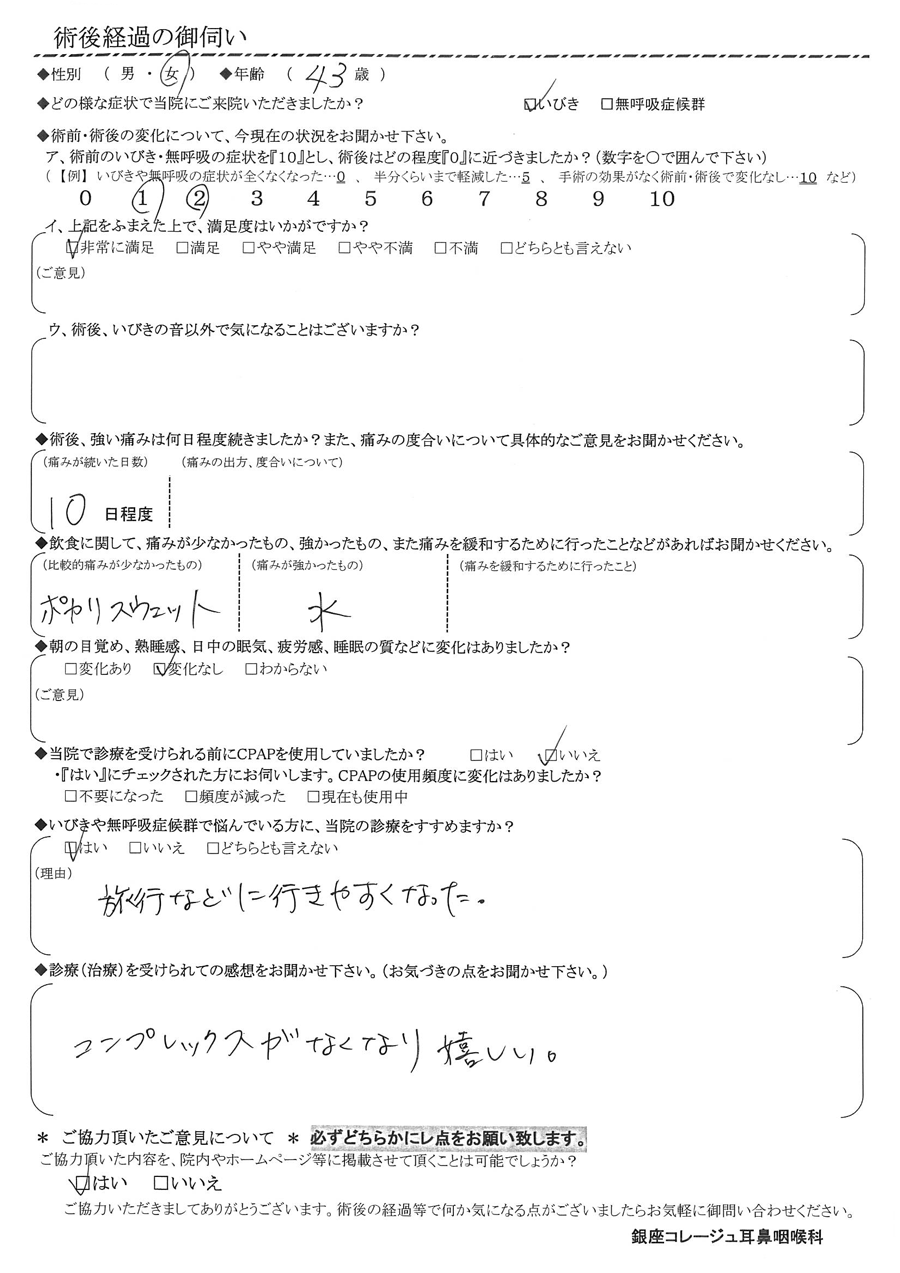 術後経過の御伺い
◆性別 （ 男 ・ 女 ） ◆年齢 （ 43 歳 ）
◆どの様な症状で当院にご来院いただきましたか？ ☑いびき □無呼吸症候群
◆術前・術後の変化について、今現在の状況をお聞かせ下さい。
ア、術前のいびき・無呼吸の症状を『10』とし、術後はどの程度『0』に近づきましたか？（数字を〇で囲んで下さい）
（ 【例】 いびきや無呼吸の症状が全くなくなった…0 、 半分くらいまで軽減した…5 、 手術の効果がなく術前・術後で変化なし…10 など）
0 1 2 3 4 5 6 7 8 9 10
イ、上記をふまえた上で、満足度はいかがですか？
☑非常に満足 □満足 □やや満足 □やや不満 □不満 □どちらとも言えない
（ご意見）
ウ、術後、いびきの音以外で気になることはございますか？
◆術後、強い痛みは何日程度続きましたか？また、痛みの度合いについて具体的なご意見をお聞かせください。
（痛みが続いた日数） （痛みの出方、度合いについて）
10 日程度
◆飲食に関して、痛みが少なかったもの、強かったもの、また痛みを緩和するために行ったことなどがあればお聞かせください。
（比較的痛みが少なかったもの） （痛みが強かったもの） （痛みを緩和するために行ったこと）
ポカリスウェット 水
◆朝の目覚め、熟睡感、日中の眠気、疲労感、睡眠の質などに変化はありましたか？
□変化あり ☑変化なし □わからない
（ご意見）
◆当院で診療を受けられる前にCPAPを使用していましたか？ □はい ☑いいえ
・『はい』にチェックされた方にお伺いします。CPAPの使用頻度に変化はありましたか？
□不要になった □頻度が減った □現在も使用中
◆いびきや無呼吸症候群で悩んでいる方に、当院の診療をすすめますか？
☑はい □いいえ □どちらとも言えない
（理由）
旅行などに行きやすくなった。
◆診療（治療）を受けられての感想をお聞かせ下さい。（お気づきの点をお聞かせ下さい。）
コンプレックスがなくなり嬉しい。
＊ ご協力頂いたご意見について ＊ 必ずどちらかにレ点をお願い致します。
ご協力頂いた内容を、院内やホームページ等に掲載させて頂くことは可能でしょうか？
☑はい □いいえ
ご協力いただきましてありがとうございます。術後の経過等で何か気になる点がございましたらお気軽に御問い合わせください。
銀座コレージュ耳鼻咽喉科